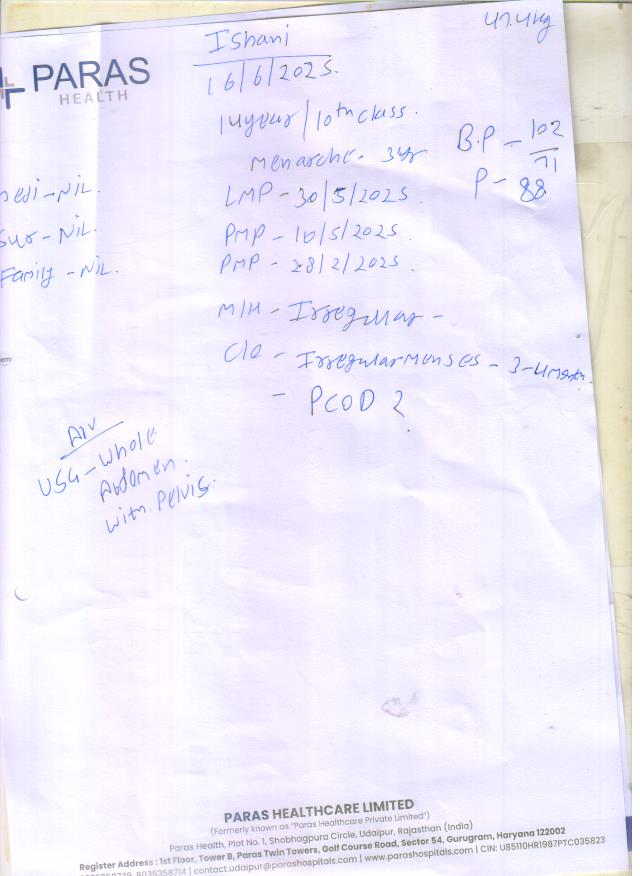 PARAS
HEALTH
Ishani
47.4kg
16/6/2025.
14year/10th class.
B.P - 102
71
Menarche - 3yr
P - 88
medi - NIL.
LMP - 30/5/2025
Sur - NIL.
PMP - 10/5/2025
Family - NIL.
PMP - 28/2/2025.
M/H - Irregular -
C/O - Irregular menses - 3-4 month.
- PCOD ?
Adv
USG - Whole
Abdomen.
with Pelvis.
PARAS HEALTHCARE LIMITED
(Formerly known as "Paras Healthcare Private Limited")
Paras Health, Plot No. 1, Shobhagpura Circle, Udaipur, Rajasthan (India)
Register Address : 1st Floor, Tower B, Paras Twin Towers, Golf Course Road, Sector 54, Gurugram, Haryana 122002
8035358714 | contact.udaipur@parashospitals.com | www.parashospitals.com | CIN: U85110HR1987PTC035823